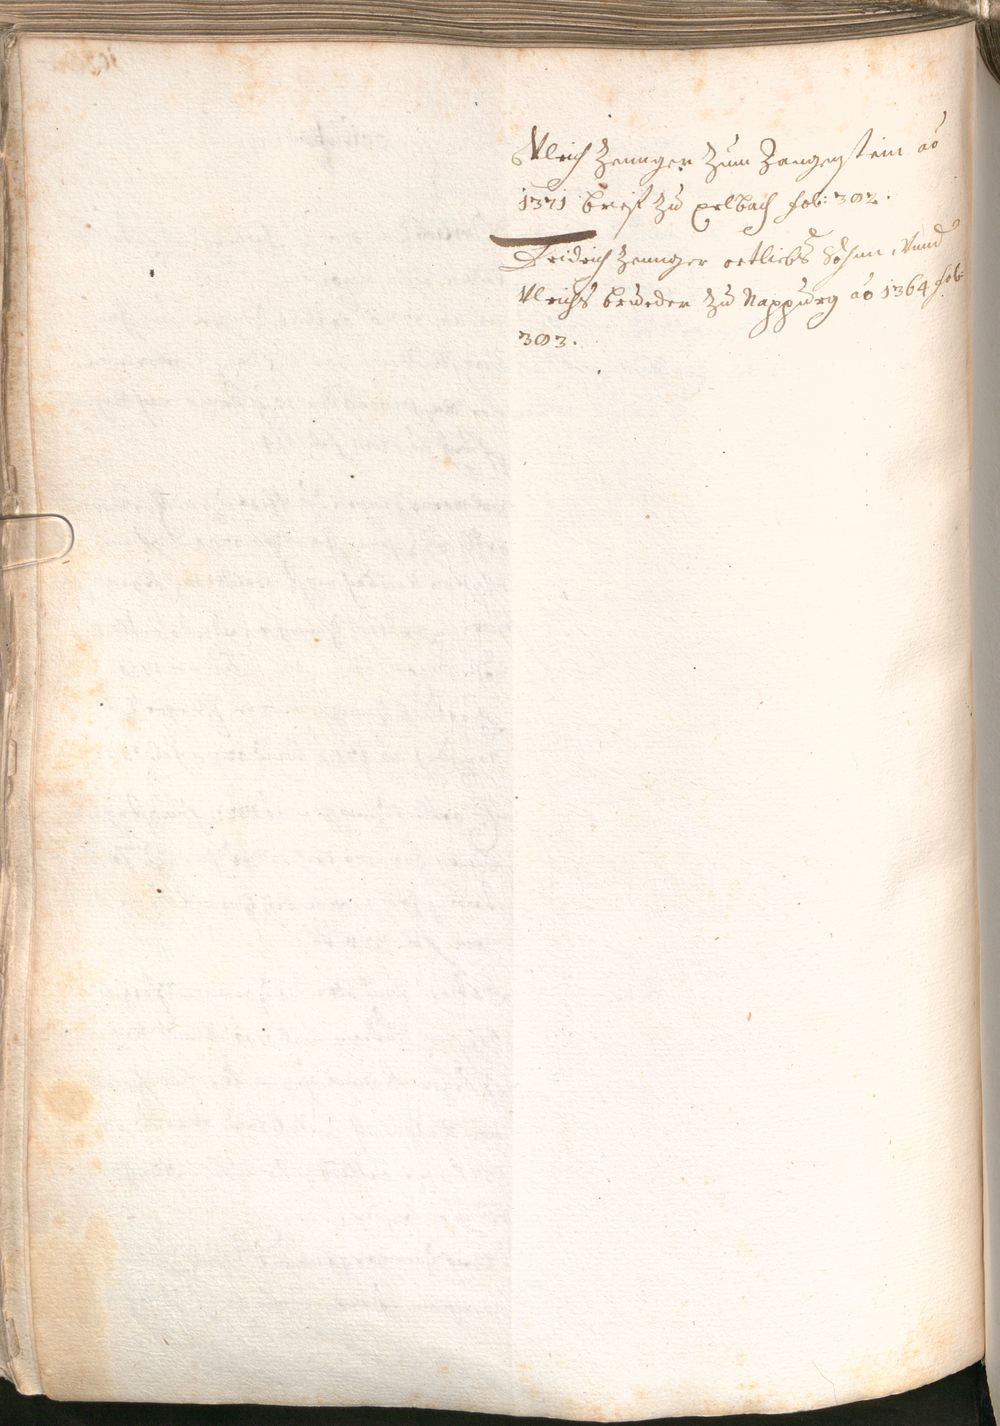 Vlrich Zennger zum Zangenstein ao
1371 brief zu pelbach fol: 302.
Fridrich Zennger ortliebs Sohnn, Vnnd
Vlrichs brueder zu Nappurg ao 1364 fol:
303.